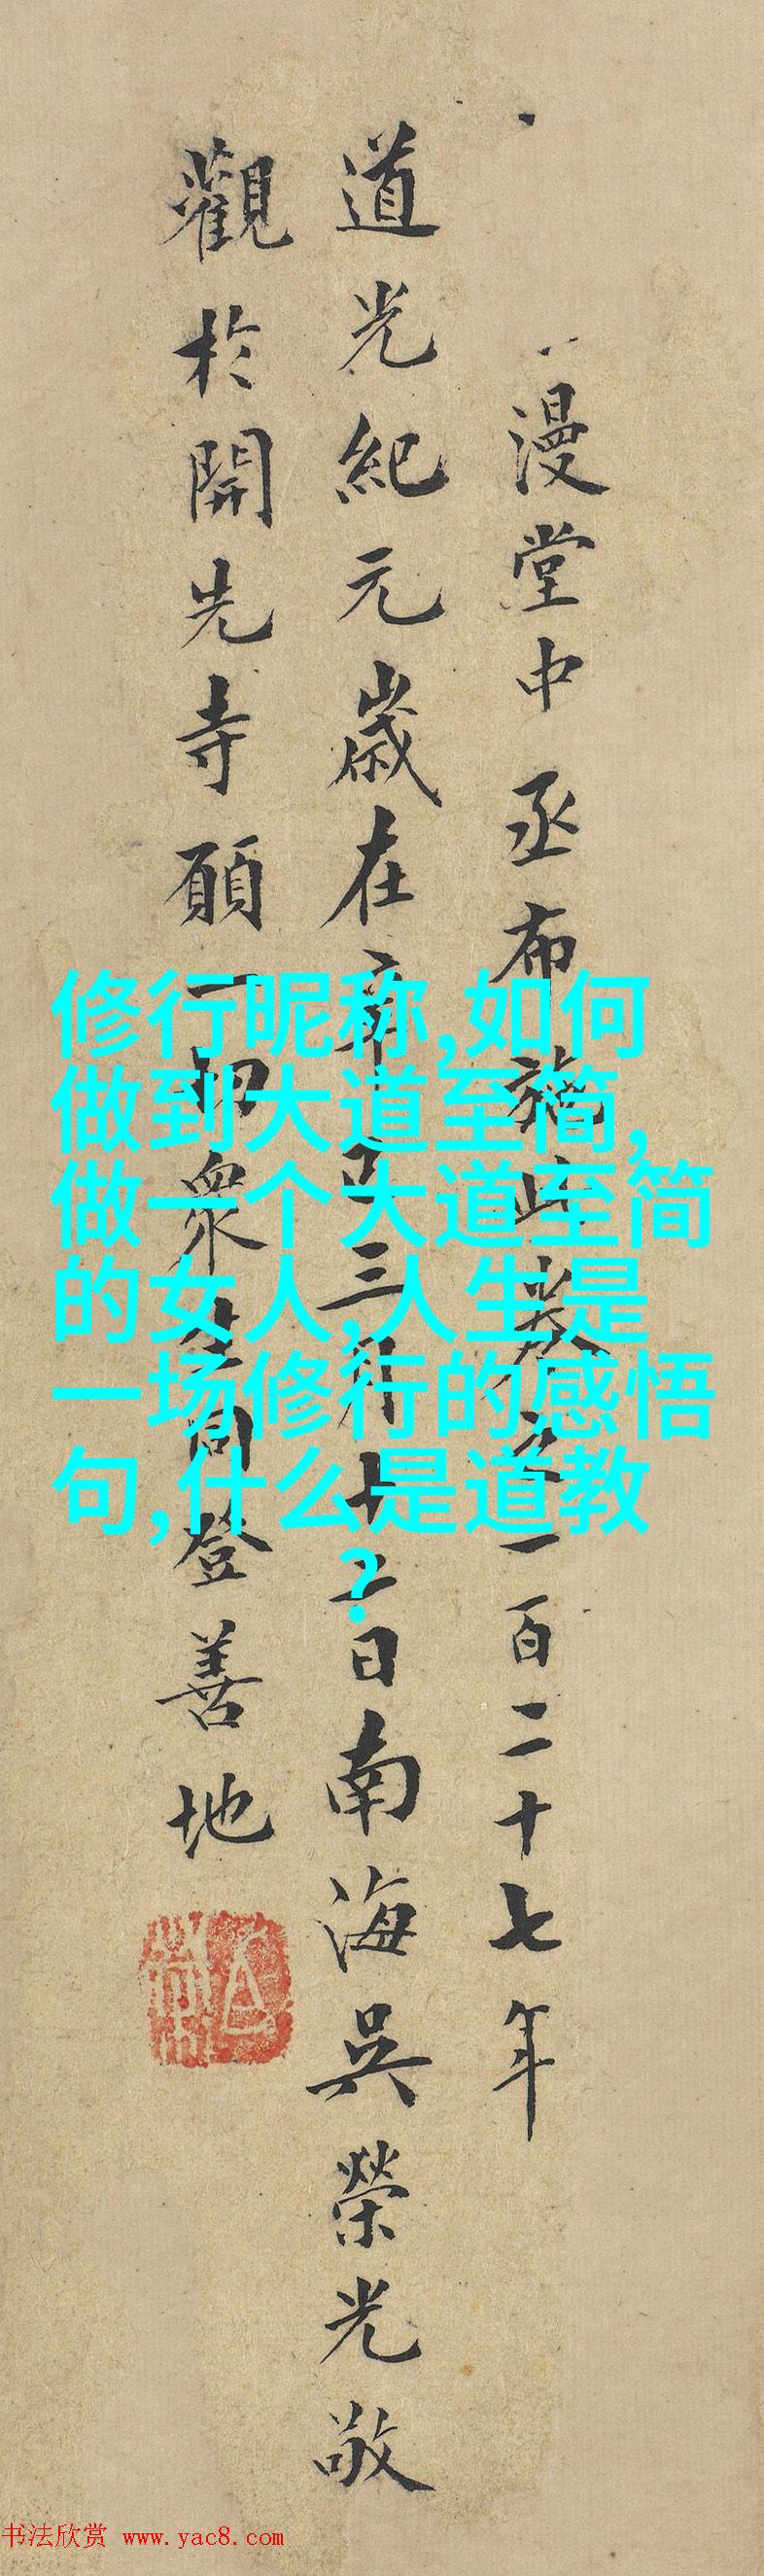 漫堂中丞布施此卷之一百二十七年
道光紀元歲在辛巳三月十二日南海吳榮光敬
觀於開先寺願一切眾生同登善地
修行昵称,如何
做到大道至简,
做一个大道至简
的女人,人生是
一场修行的感悟
句,什么是道教
?
书法欣赏 www.yac8.com